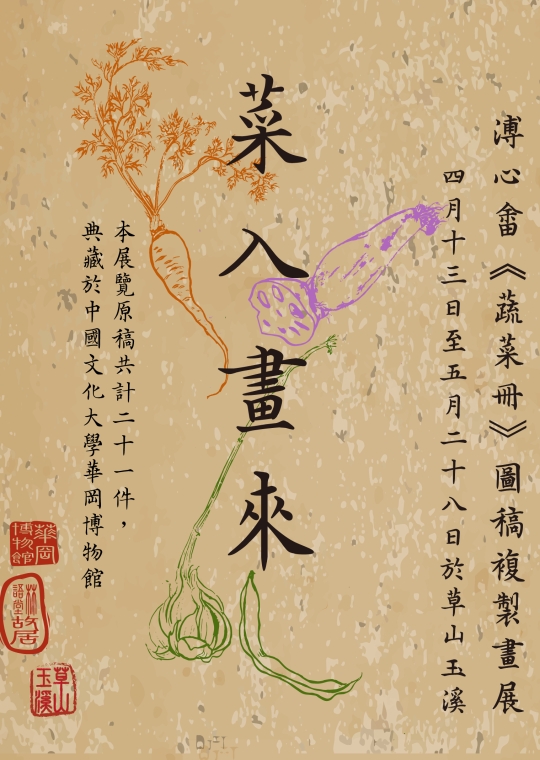 溥心畬《蔬菜冊》圖稿複製畫展
四月十三日至五月二十八日於草山玉溪
菜入畫來
本展覽原稿共計二十一件，
典藏於中國文化大學華岡博物館
華岡博物館
林語堂故居
草山玉溪